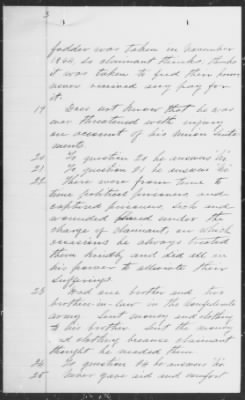 3
fodder was taken in November
1864, so claimant thinks, thinks
it was taken to feed their horses
never received any pay for
it.
19 Does not know that he was
ever threatened with injury
on account of his Union senti
ments
20 To question 20 he answers 'No'
21 To question 21 he answers 'No'
22 There were from time to
time political prisoners and
captured prisoners, sick and
wounded placed under the
charge of claimant, on which
occasions he always treated
them kindly and did all in
his power to alleviate their
sufferings.
23 Had one brother and two
brothers-in-law in the Confederate
army. Sent money and clothing
to his brother. Sent the money
and clothing because claimant
thought he needed them.
24 To question 24 he answers 'No'
25 Never gave aid and comfort